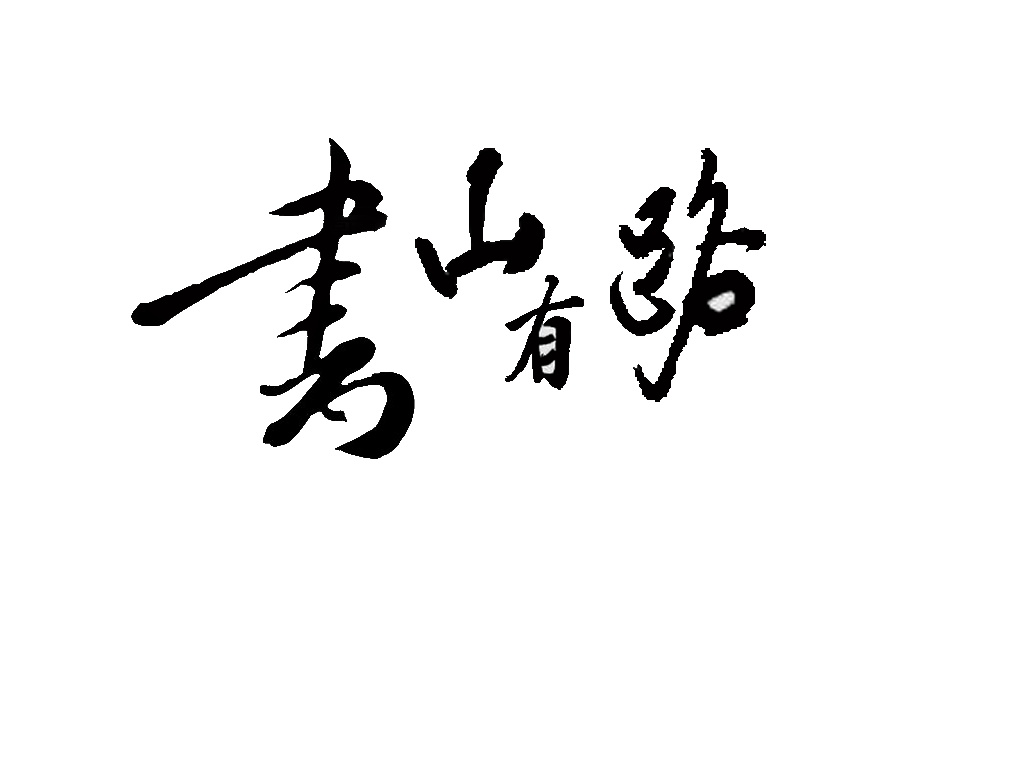 書山有路